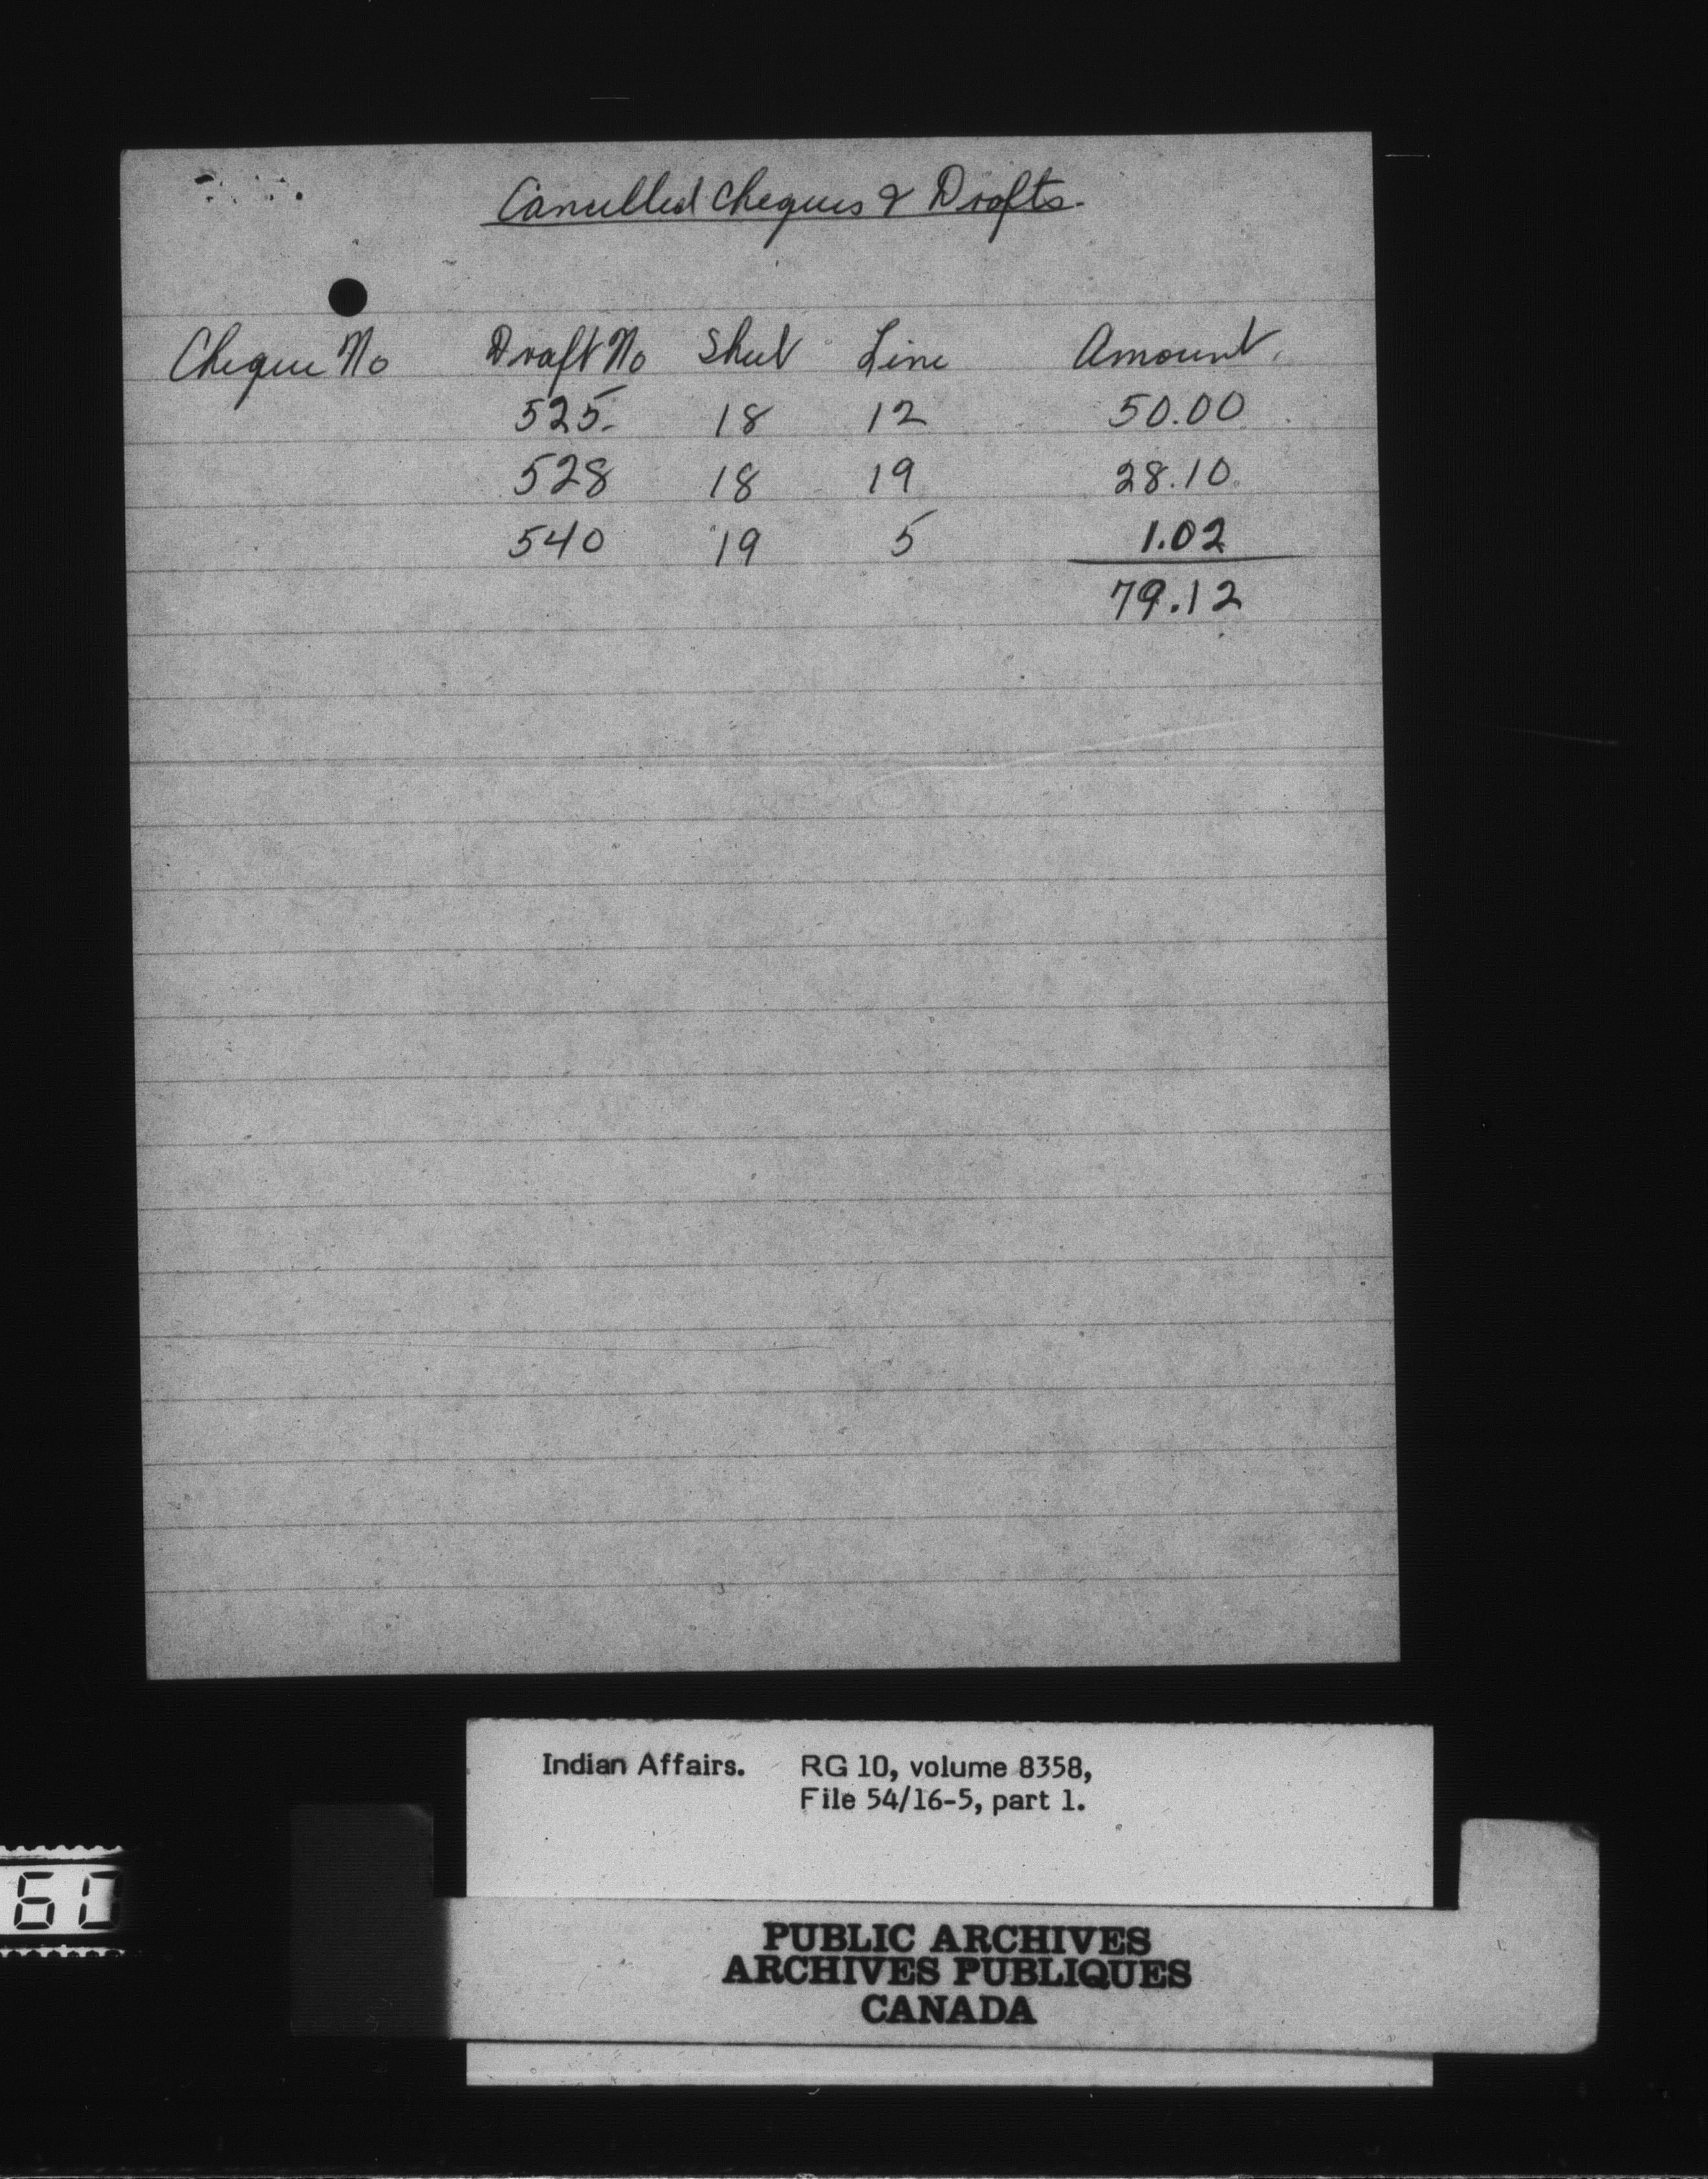 Cancelled Cheques & Drafts.
Cheque No Draft No Sheet Line Amount.
525. 18 12 50.00
528 18 19 28.10
540 19 5 1.02
79.12
Indian Affairs. RG 10, volume 8358,
File 54/16-5, part 1.
60
PUBLIC ARCHIVES
ARCHIVES PUBLIQUES
CANADA